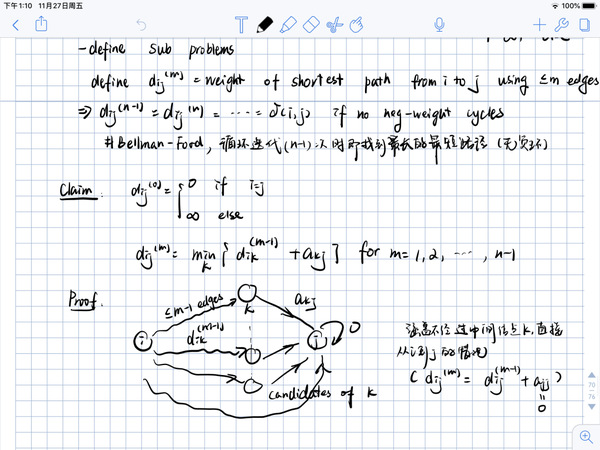 下午1:10 11月27日周五
100%
-define sub problems
define dij^(m) = weight of shortest path from i to j using ≤m edges
⇒ dij^(n-1) = dij^(n) = ⋯ = δ(i,j) if no neg-weight cycles
#Bellman-Ford, 循环迭代(n-1)次时即找到最长的最短路径 (无负环)
Claim. dij^(0) = { 0 if i=j
∞ else
dij^(m) = min k { dik^(m-1) + akj } for m=1,2, ⋯, n-1
Proof.
≤m-1 edges
k
akj
dik^(m-1)
i
j
0
candidates of k
涵盖不经过中间结点k,直接
从i到j的情况
( dij^(m) = dij^(m-1) + ajj )
=
0
70
76